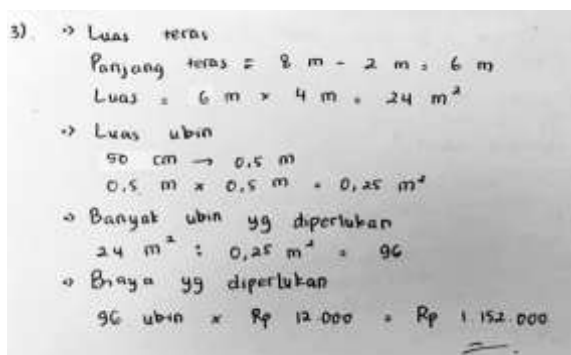 3) → Luas teras
Panjang teras = 8 m - 2 m = 6 m
Luas = 6 m × 4 m = 24 m²
→ Luas ubin
50 cm → 0,5 m
0,5 m × 0,5 m = 0,25 m²
→ Banyak ubin yg diperlukan
24 m² : 0,25 m² = 96
→ Biaya yg diperlukan
96 ubin × Rp 12.000 = Rp 1.152.000